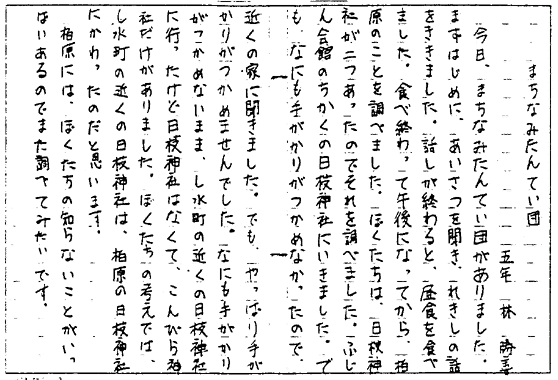 まちなみたんてい団
五年 林
今日、まちなみたんてい団がありました。
まずはじめに、あいさつを聞き、れきしの話
をききました。話しが終わると、昼食を食べ
ました。食べ終わって午後になってから、柏
原のことを調べました。ぼくたちは、日枝神
社が二つあったのでそれを調べました。ふじ
ん会館のちかくの日枝神社にいきました。で
も、なにも手がかりがつかめなかったので、
近くの家に聞きました。でも、やっぱり手が
かりがつかめませんでした。なにも手がかり
がつかめないまま、し水町の近くの日枝神社
に行ったけど日枝神社はなくて、こんぴら神
社だけがありました。ぼくたちの考えでは、
し水町の近くの日枝神社は、柏原の日枝神社
にかわったのだと思います。
柏原には、ぼくたちの知らないことがいっ
ぱいあるのでまた調べてみたいです。